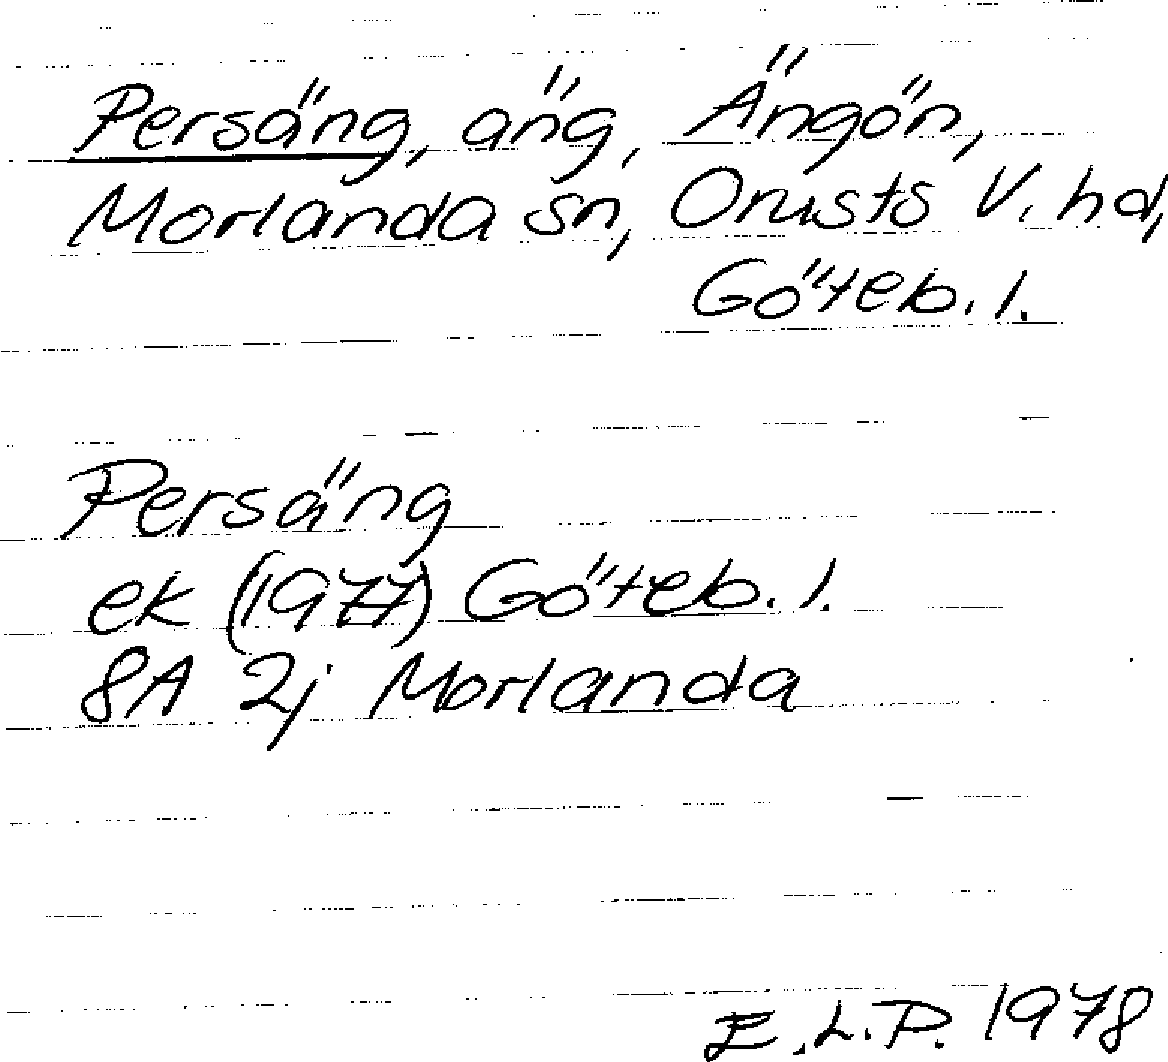 Persäng, äng, Ängön,
Morlanda sn, Orusts V. hd,
Göteb. l.
Persäng
ek (1977) Göteb. l.
8A 2j Morlanda
E.L.P. 1978